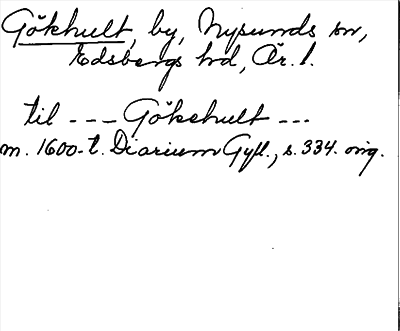 Gökhult, by, Nysunds sn,
Edsbergs hd, Ör. l.
til --- Gökehult ---
m. 1600-t. Diarium Gyll., s. 334. orig.